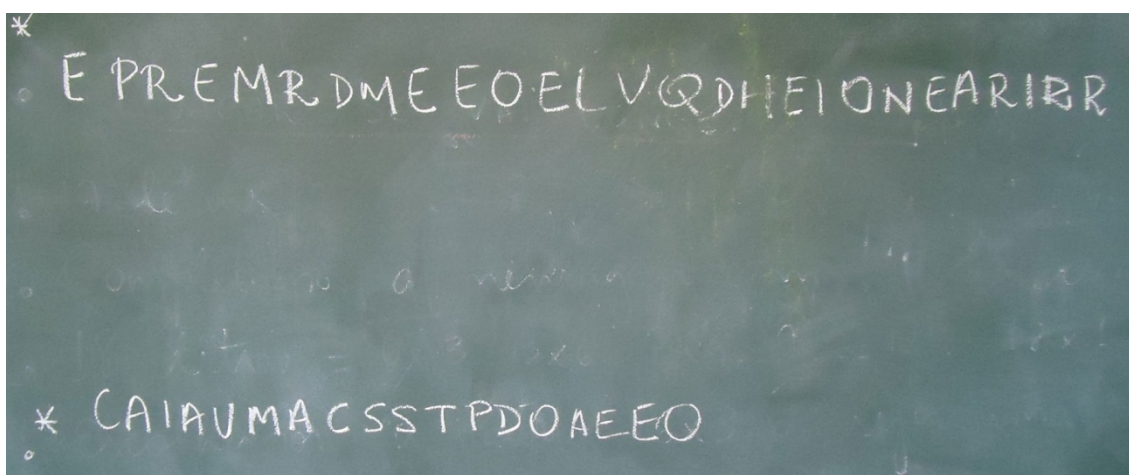 * EPREMRDMEEOELVQDHEIONEARIBR
* CAIAUMACSSTPDOAEEQ